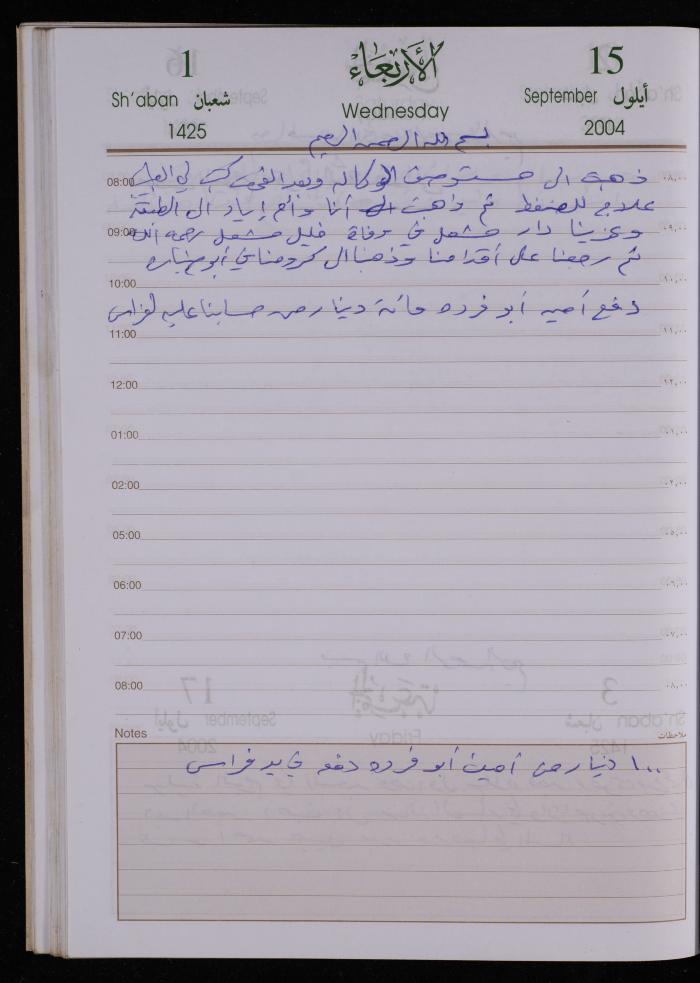 1 الأربعاء 15
Sh'aban شعبان Wednesday September أيلول
1425 2004
بسم الله الرحمن الرحيم
08:00 ذهبت الى مستوصف الوكالة وبعد الفحص كتب لي ٠٨,٠٠
علاج للضغط ثم ذهبت أنا وأم إياد الى الطبقة
09:00 وعزينا دار مشعل في وفاة خليل مشعل رحمه الله ٠٩,٠٠
ثم رجعنا على أقدامنا وذهبنا الى كرومنا في أبو خباره
10:00 ١٠,٠٠
دفع أمين أبو فرده مائة دينار من حسابنا عليه لفراس
11:00 ١١,٠٠
12:00 ١٢,٠٠
01:00 ٠١,٠٠
02:00 ٠٢,٠٠
05:00 ٠٥,٠٠
06:00 ٠٦,٠٠
07:00 ٠٧,٠٠
08:00 ٠٨,٠٠
Notes ملاحظات
١٠٠ دينار من أمين أبو فرده دفعه في يد فراس